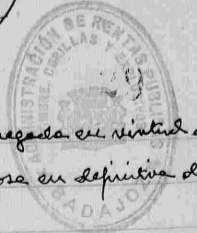 ADMINISTRACIÓN DE RENTAS PÚBLICAS
CÉDULAS Y
BADAJOZ
pagada en virtud
ose en definitiva d